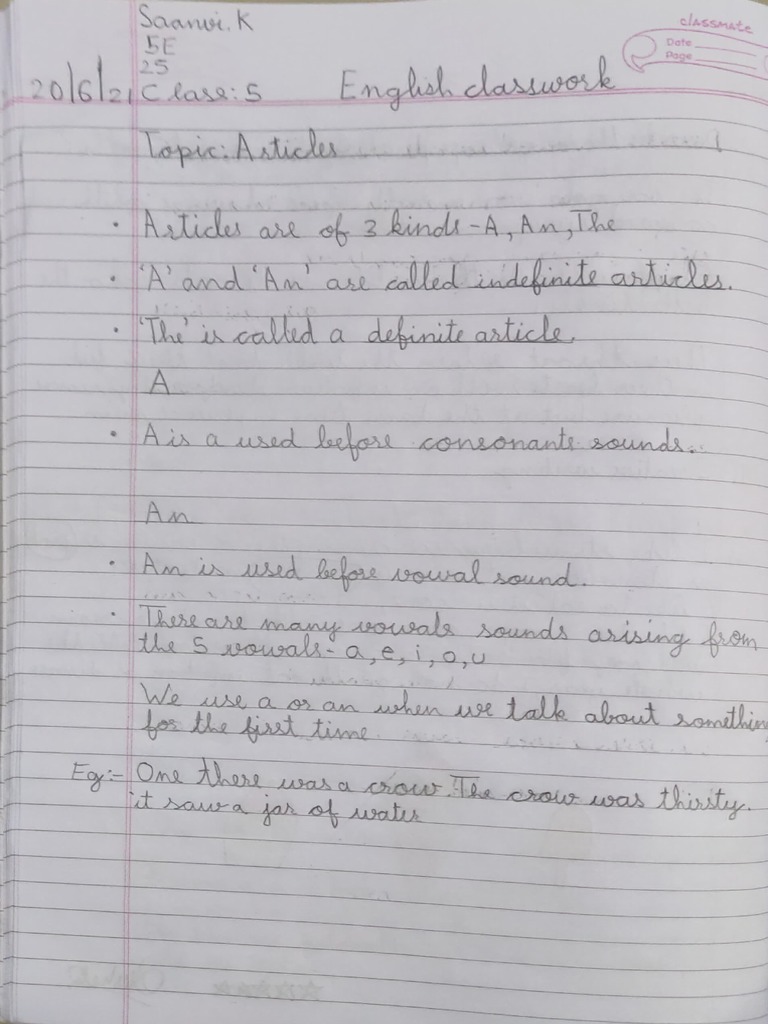 Saanvi.K
classmate
5E
Date
Page
25
20/6/21 Class: 5 English classwork
Topic: Articles
· Articles are of 3 kinds - A, An, The
· 'A' and 'An' are called indefinite articles.
· 'The' is called a definite article.
A
· A is a used before consonants sounds..
An
· An is used before vowal sound.
· There are many vowals sounds arising from
the 5 vowals - a, e, i, o, u
We use a or an when we talk about somethin
for the first time
Eg:- One there was a crow. The crow was thirsty.
it saw a jar of water